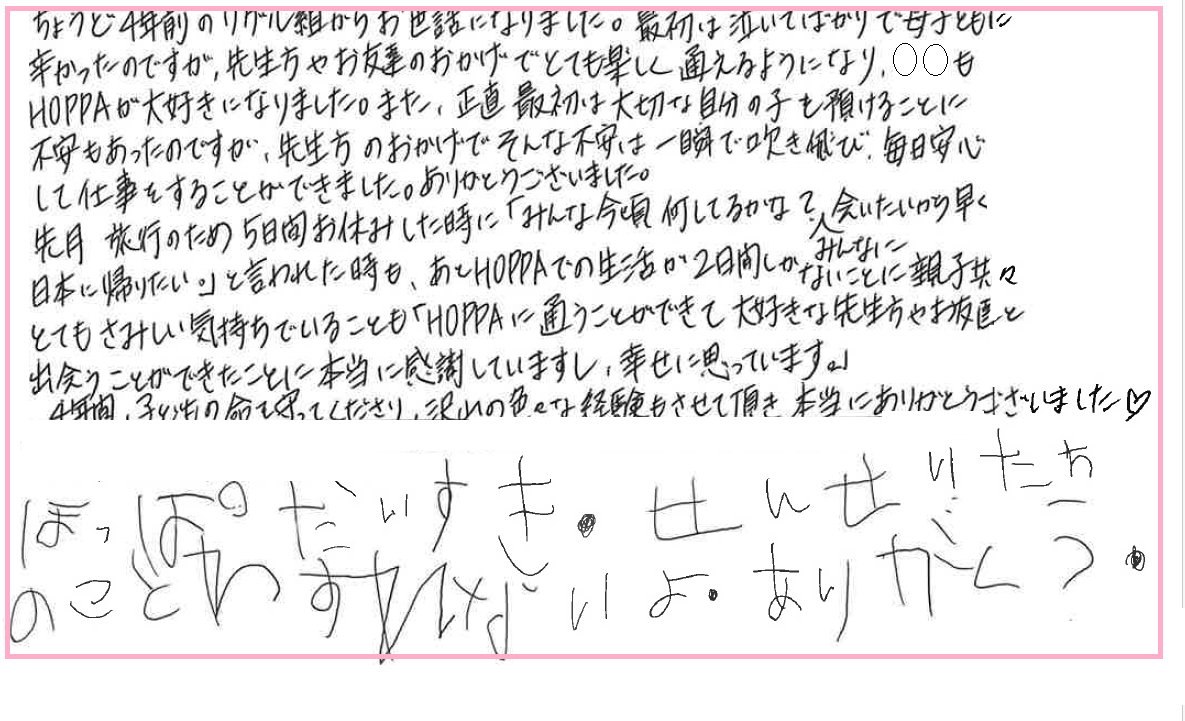 ちょうど4年前のリグル組からお世話になりました。最初は泣いてばかりで母子ともに
辛かったのですが、先生方やお友達のおかげでとても楽しく通えるようになり、○○も
HOPPAが大好きになりました。また、正直最初は大切な自分の子を預けることに
不安もあったのですが、先生方のおかげでそんな不安は一瞬で吹き飛び、毎日安心
して仕事をすることができました。ありがとうございました。
先月 旅行のため5日間お休みした時に「みんな今頃何してるかな？会いたいから早く
日本に帰りたい。」と言われた時も、あとHOPPAでの生活が2日間しかないことに親子共々
人みんなに
とてもさみしい気持ちでいることも「HOPPAに通うことができて大好きな先生方やお友達と
出会うことができたことに本当に感謝していますし、幸せに思っています。」
4年間、子供達の命を守ってくださり、沢山の色々な経験もさせて頂き 本当にありがとうございました♡
ほっぽだいすき。せんせいたち
のことわすれないよ。ありがとう。